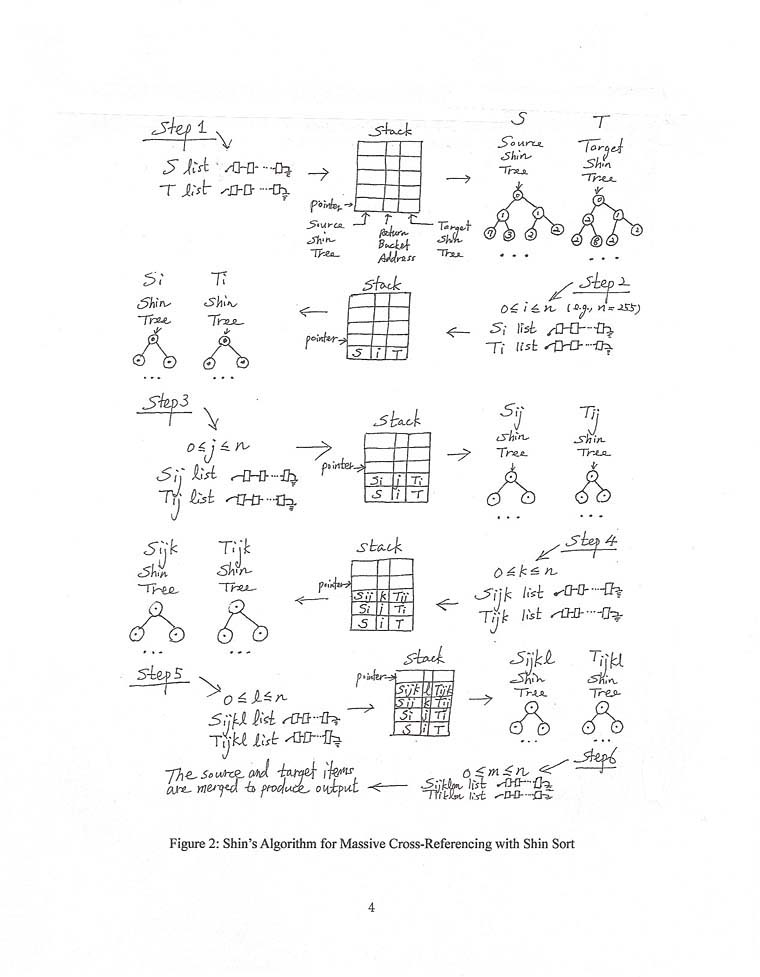 Step 1
S list
T list
Stack
pointer
Source Shin Tree
Return Bucket Address
Target Shin Tree
S
Source
Shin
Tree
T
Target
Shin
Tree
Step 2
0 ≤ i ≤ n (e.g., n = 255)
Si list
Ti list
Stack
pointer
S i T
Si
Shin
Tree
Ti
Shin
Tree
Step 3
0 ≤ j ≤ n
Sij list
Tij list
Stack
pointer
Si j Ti
S i T
Sij
Shin
Tree
Tij
Shin
Tree
Step 4
0 ≤ k ≤ n
Sijk list
Tijk list
Stack
pointer
Sij k Tij
Si j Ti
S i T
Sijk
Shin
Tree
Tijk
Shin
Tree
Step 5
0 ≤ l ≤ n
Sijkl list
Tijkl list
Stack
pointer
Sijk l Tijk
Sij k Tij
Si j Ti
S i T
Sijkl
Shin
Tree
Tijkl
Shin
Tree
Step 6
0 ≤ m ≤ n
Sijklm list
Tijklm list
The source and target items
are merged to produce output
Figure 2: Shin's Algorithm for Massive Cross-Referencing with Shin Sort
4